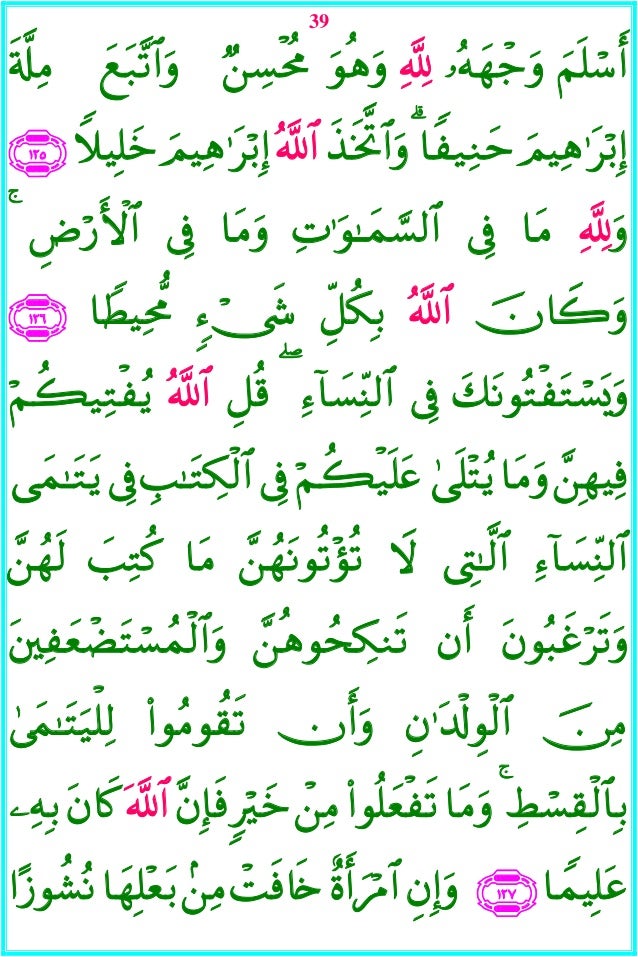 39
أَسْلَمَ وَجْهَهُۥ لِلَّهِ وَهُوَ مُحْسِنٌۭ وَٱتَّبَعَ مِلَّةَ
إِبْرَٰهِيمَ حَنِيفًۭا ۗ وَٱتَّخَذَ ٱللَّهُ إِبْرَٰهِيمَ خَلِيلًۭا ١٢٥
وَلِلَّهِ مَا فِى ٱلسَّمَـٰوَٰتِ وَمَا فِى ٱلْأَرْضِ ۚ
وَكَانَ ٱللَّهُ بِكُلِّ شَىْءٍۢ مُّحِيطًۭا ١٢٦
وَيَسْتَفْتُونَكَ فِى ٱلنِّسَآءِ ۖ قُلِ ٱللَّهُ يُفْتِيكُمْ
فِيهِنَّ وَمَا يُتْلَىٰ عَلَيْكُمْ فِى ٱلْكِتَـٰبِ فِى يَتَـٰمَى
ٱلنِّسَآءِ ٱلَّـٰتِى لَا تُؤْتُونَهُنَّ مَا كُتِبَ لَهُنَّ
وَتَرْغَبُونَ أَن تَنكِحُوهُنَّ وَٱلْمُسْتَضْعَفِينَ
مِنَ ٱلْوِلْدَٰنِ وَأَن تَقُومُوا۟ لِلْيَتَـٰمَىٰ
بِٱلْقِسْطِ ۚ وَمَا تَفْعَلُوا۟ مِنْ خَيْرٍۢ فَإِنَّ ٱللَّهَ كَانَ بِهِۦ
عَلِيمًۭا ١٢٧ وَإِنِ ٱمْرَأَةٌ خَافَتْ مِنۢ بَعْلِهَا نُشُوزًا